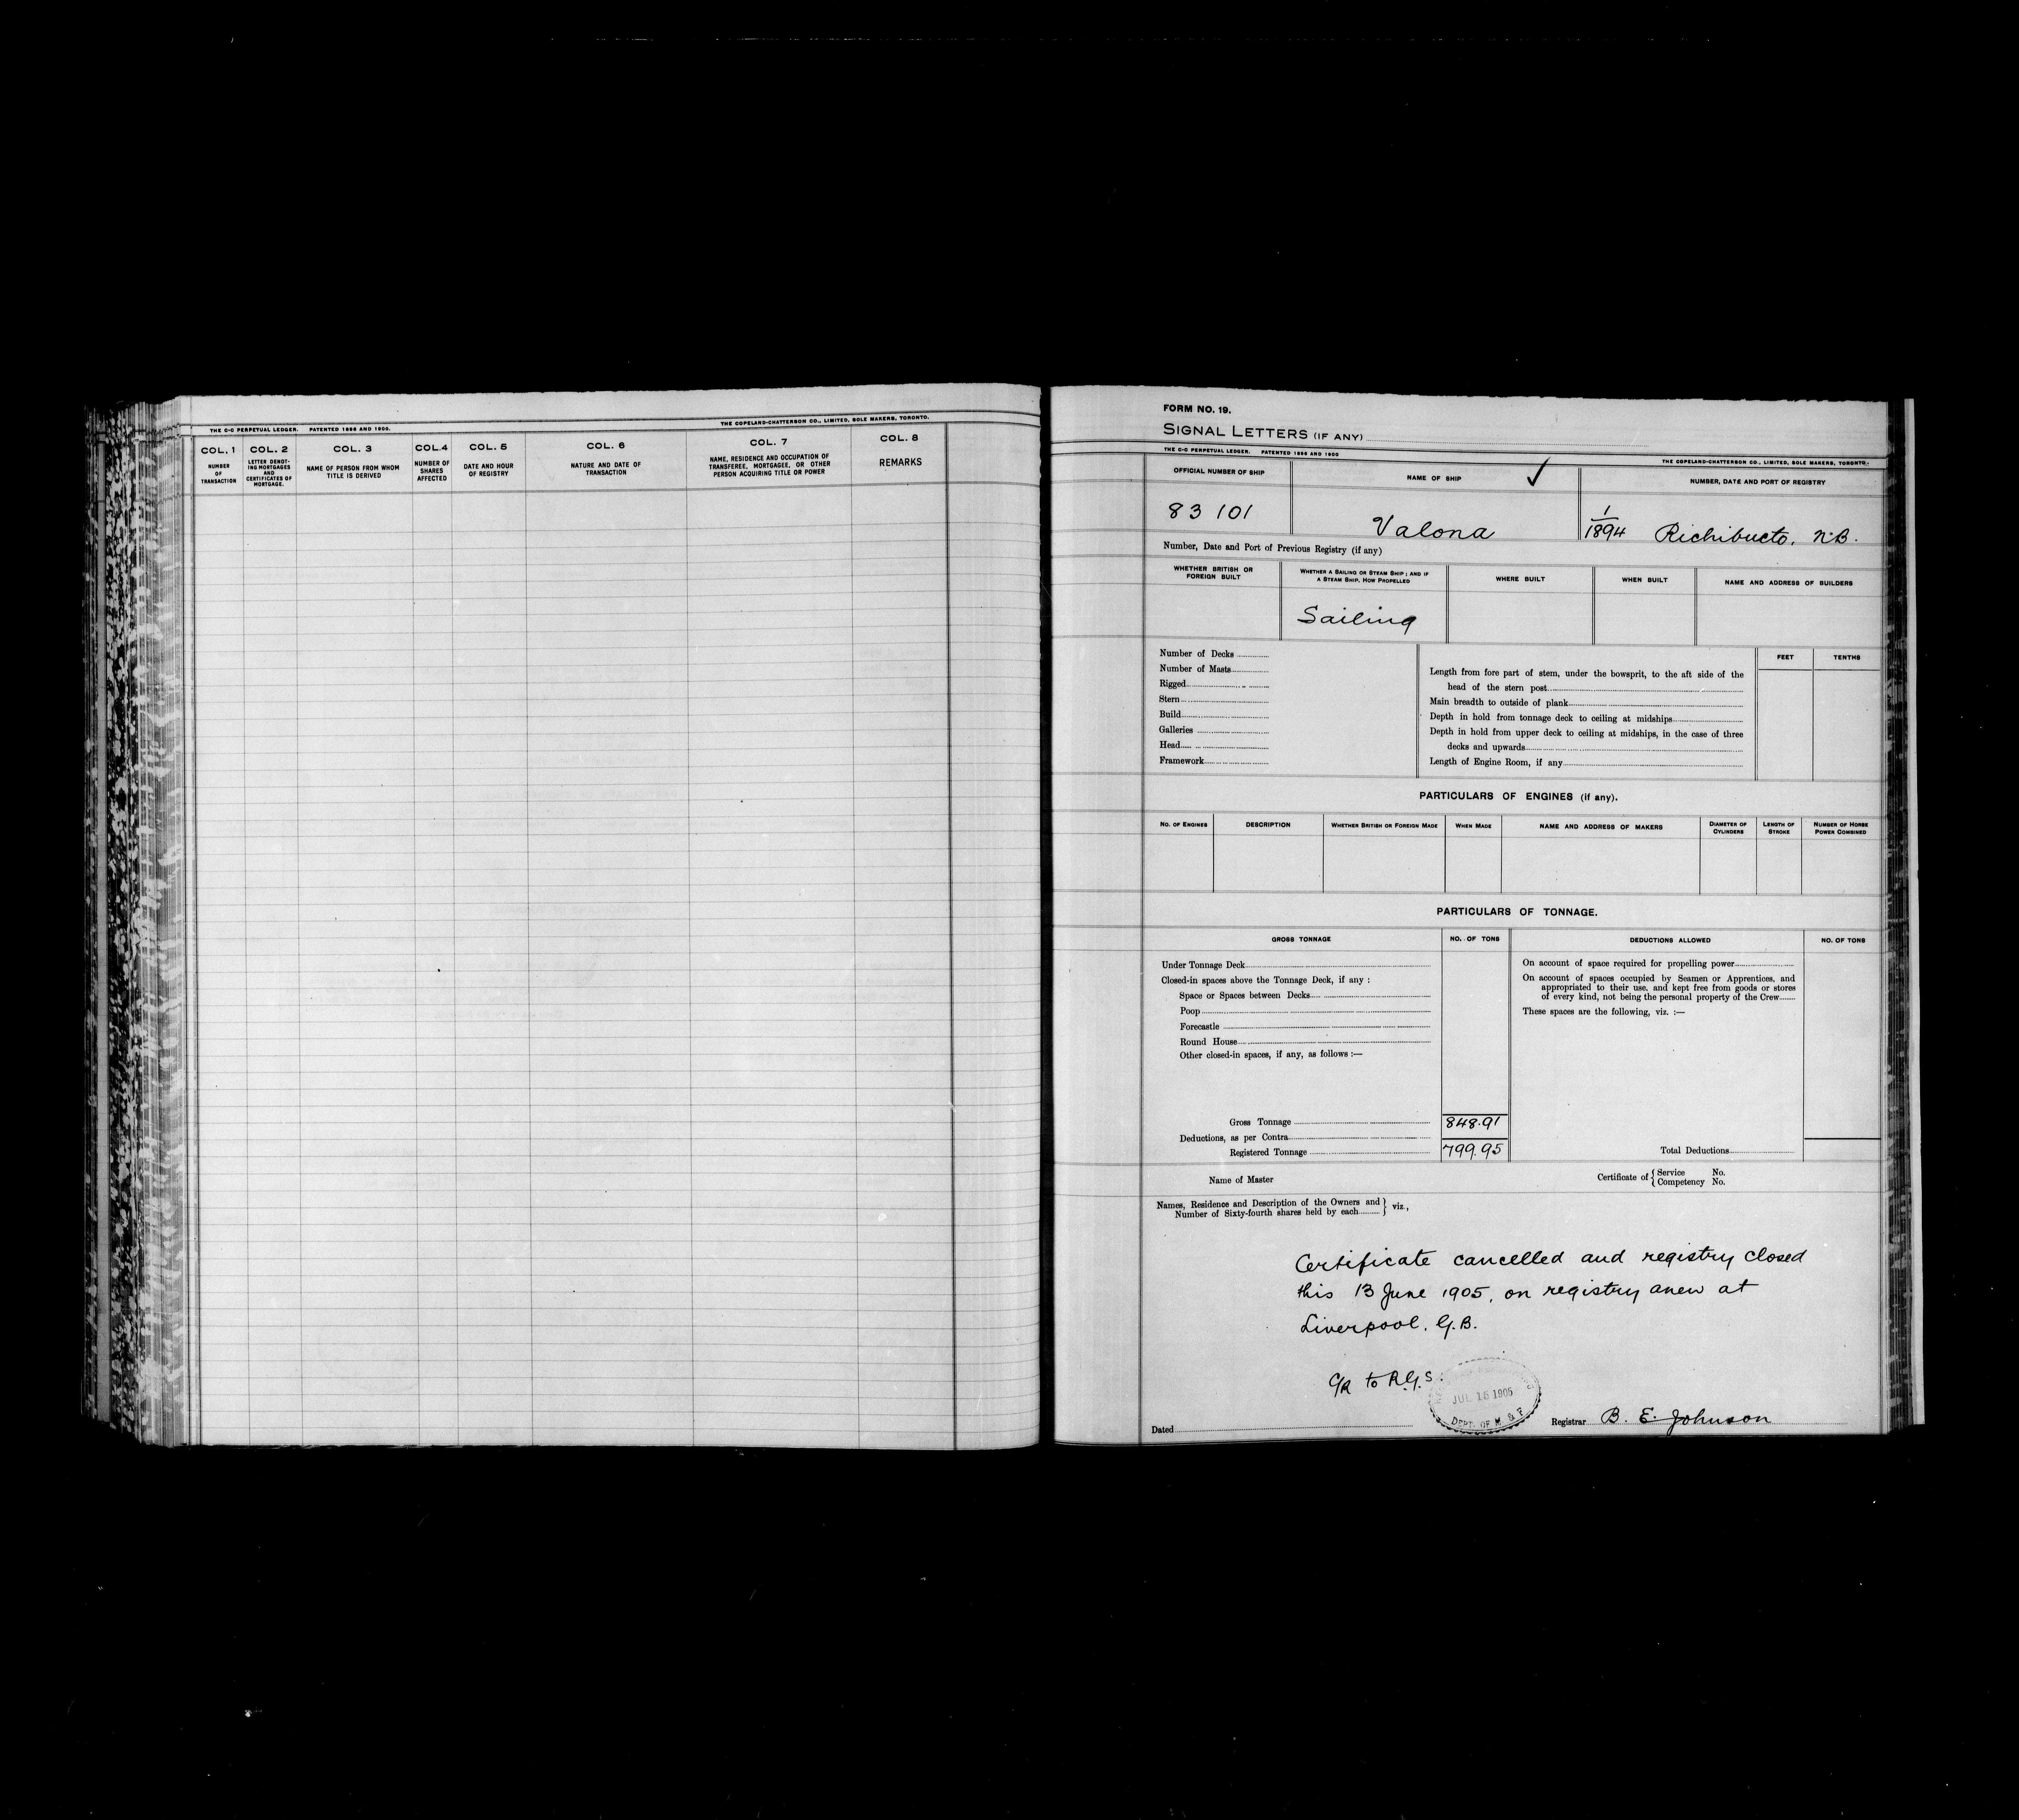 THE C-C PERPETUAL LEDGER. PATENTED 1896 AND 1900. THE COPELAND-CHATTERSON CO., LIMITED, SOLE MAKERS, TORONTO.
COL. 1 COL. 2 COL. 3 COL. 4 COL. 5 COL. 6 COL. 7 COL. 8
NUMBER OF TRANSACTION
LETTER DENOT-ING MORTGAGES AND CERTIFICATES OF MORTGAGE.
NAME OF PERSON FROM WHOM TITLE IS DERIVED
NUMBER OF SHARES AFFECTED
DATE AND HOUR OF REGISTRY
NATURE AND DATE OF TRANSACTION
NAME, RESIDENCE AND OCCUPATION OF TRANSFEREE, MORTGAGEE, OR OTHER PERSON ACQUIRING TITLE OR POWER
REMARKS
FORM NO. 19.
SIGNAL LETTERS (IF ANY)
THE C-C PERPETUAL LEDGER. PATENTED 1896 AND 1900 THE COPELAND-CHATTERSON CO., LIMITED, SOLE MAKERS, TORONTO.
OFFICIAL NUMBER OF SHIP NAME OF SHIP ✓ NUMBER, DATE AND PORT OF REGISTRY
83 101 Valona 1/1894 Richibucto, N.B.
Number, Date and Port of Previous Registry (if any)
WHETHER BRITISH OR FOREIGN BUILT
WHETHER A SAILING OR STEAM SHIP; AND IF A STEAM SHIP, HOW PROPELLED
WHERE BUILT WHEN BUILT NAME AND ADDRESS OF BUILDERS
Sailing
Number of Decks
Number of Masts
Rigged
Stern
Build
Galleries
Head
Framework
FEET TENTHS
Length from fore part of stem, under the bowsprit, to the aft side of the
head of the stern post
Main breadth to outside of plank
Depth in hold from tonnage deck to ceiling at midships
Depth in hold from upper deck to ceiling at midships, in the case of three
decks and upwards
Length of Engine Room, if any
PARTICULARS OF ENGINES (if any).
NO. OF ENGINES DESCRIPTION WHETHER BRITISH OR FOREIGN MADE WHEN MADE NAME AND ADDRESS OF MAKERS DIAMETER OF CYLINDERS LENGTH OF STROKE NUMBER OF HORSE POWER COMBINED
PARTICULARS OF TONNAGE.
GROSS TONNAGE NO. OF TONS DEDUCTIONS ALLOWED NO. OF TONS
Under Tonnage Deck
Closed-in spaces above the Tonnage Deck, if any :
Space or Spaces between Decks
Poop
Forecastle
Round House
Other closed-in spaces, if any, as follows :—
Gross Tonnage 848.91
Deductions, as per Contra
Registered Tonnage 799.95
On account of space required for propelling power
On account of spaces occupied by Seamen or Apprentices, and
appropriated to their use, and kept free from goods or stores
of every kind, not being the personal property of the Crew
These spaces are the following, viz. :—
Total Deductions
Name of Master
Certificate of { Service No.
Competency No.
Names, Residence and Description of the Owners and
Number of Sixty-fourth shares held by each } viz.,
Certificate cancelled and registry closed
this 13 June 1905, on registry anew at
Liverpool, G.B.
C/R to R.G.S.
JUL 15 1905
DEPT. OF M & F
Dated
Registrar B. E. Johnson